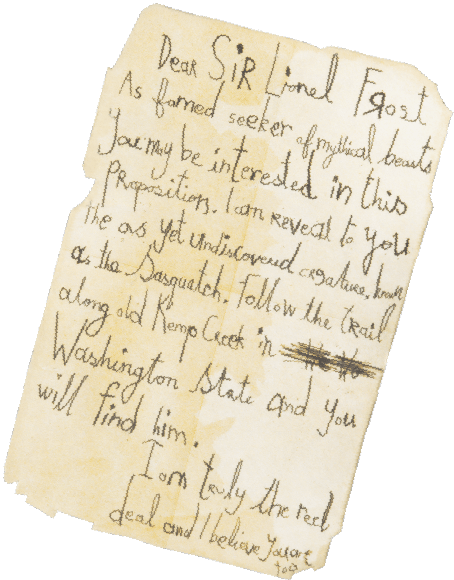 Dear Sir Lionel Frost
As famed seeker of mythical beasts
you may be interested in this
Proposition. I am reveal to you
the as yet undiscovered creature, known
as the Sasquatch. Follow the trail
along old Kemp Creek in
Washington State and you
will find him.
I am truly the reel
deal and I believe you are
too